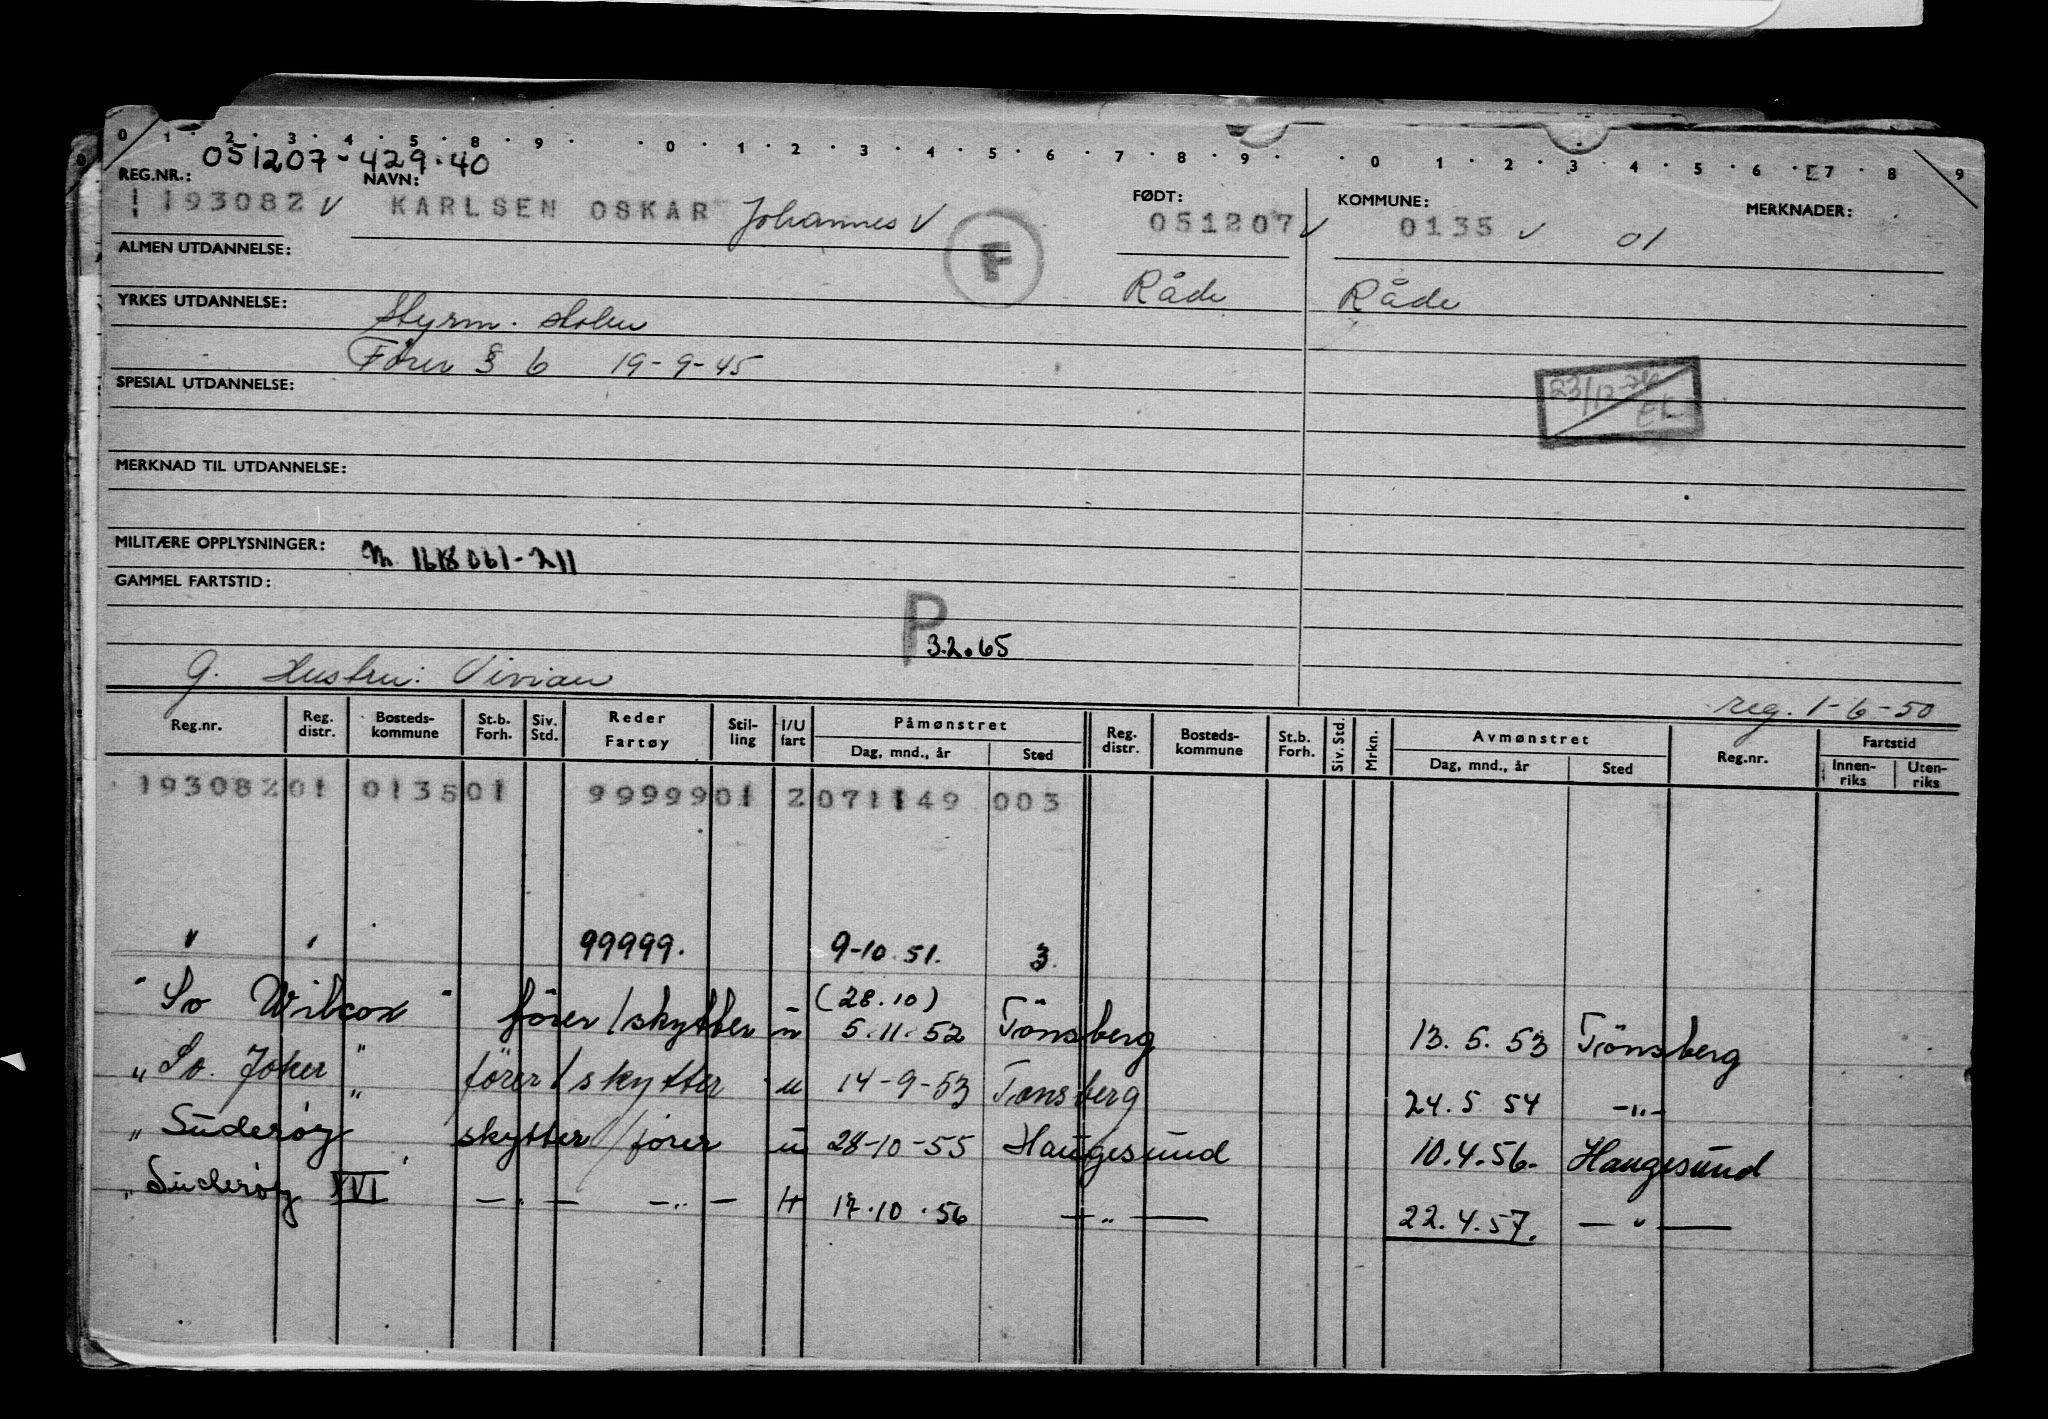 0 1 · 2 · 3 · 4 · 5 · 8 · 9 · · 0 · 1 · 2 · 3 · 4 · 5 · 6 · 7 · 8 · 9 · · 0 1 · 2 · 3 · 4 · 5 · 6 · E7 · 8 · 9
051207-429.40
REG.NR.: NAVN: FØDT: KOMMUNE: MERKNADER:
1193082 v KARLSEN OSKAR Johannes v 051207 v 0135 v 01
ALMEN UTDANNELSE: F
Råde Råde
YRKES UTDANNELSE: Styrm. skolen
Fører § 6 19-9-45
SPESIAL UTDANNELSE: 23/12
EL
MERKNAD TIL UTDANNELSE:
MILITÆRE OPPLYSNINGER: M. 1618061-211
GAMMEL FARTSTID:
P 3.2.65
G. Hustru: Vivian reg. 1-6-50
Reg.nr. Reg. distr. Bosteds-kommune St.b. Forh. Siv. Std. Reder Fartøy Stil-ling I/U fart Påmønstret Dag, mnd., år Sted Reg. distr. Bosteds-kommune St.b. Forh. Siv. Std. Mrkn. Avmønstret Dag, mnd., år Sted Reg.nr. Fartstid Innen-riks Uten-riks
193082 01 0135 01 99999 01 2 071149 003
" " 99999. 9-10.51. 3.
(28.10)
" So Wilcox " fører/skytter u 5.11.52 Tönsberg 13.5.53 Tönsberg
" So. Joker " fører/skytter u 14-9-53 Tønsberg 24.5 54 -"-
" Suderøy " skytter/fører u 28-10-55 Haugesund 10.4.56- Haugesund
" Suderøy XVI " —"— —"— H 17.10.56 —"— 22.4.57. —"—